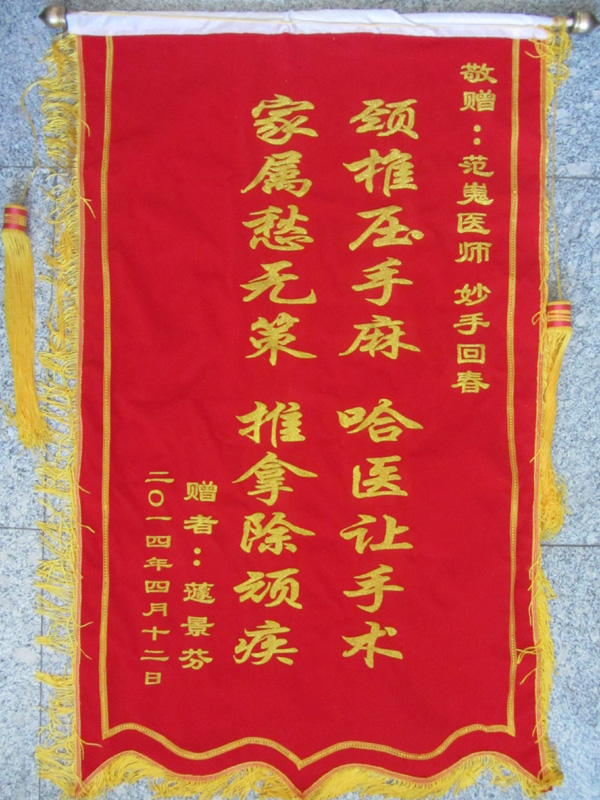 敬赠：范嵬医师 妙手回春
颈椎压手麻 哈医让手术
家属愁无策 推拿除顽疾
赠者：蓬景芬
二〇一四年四月十二日